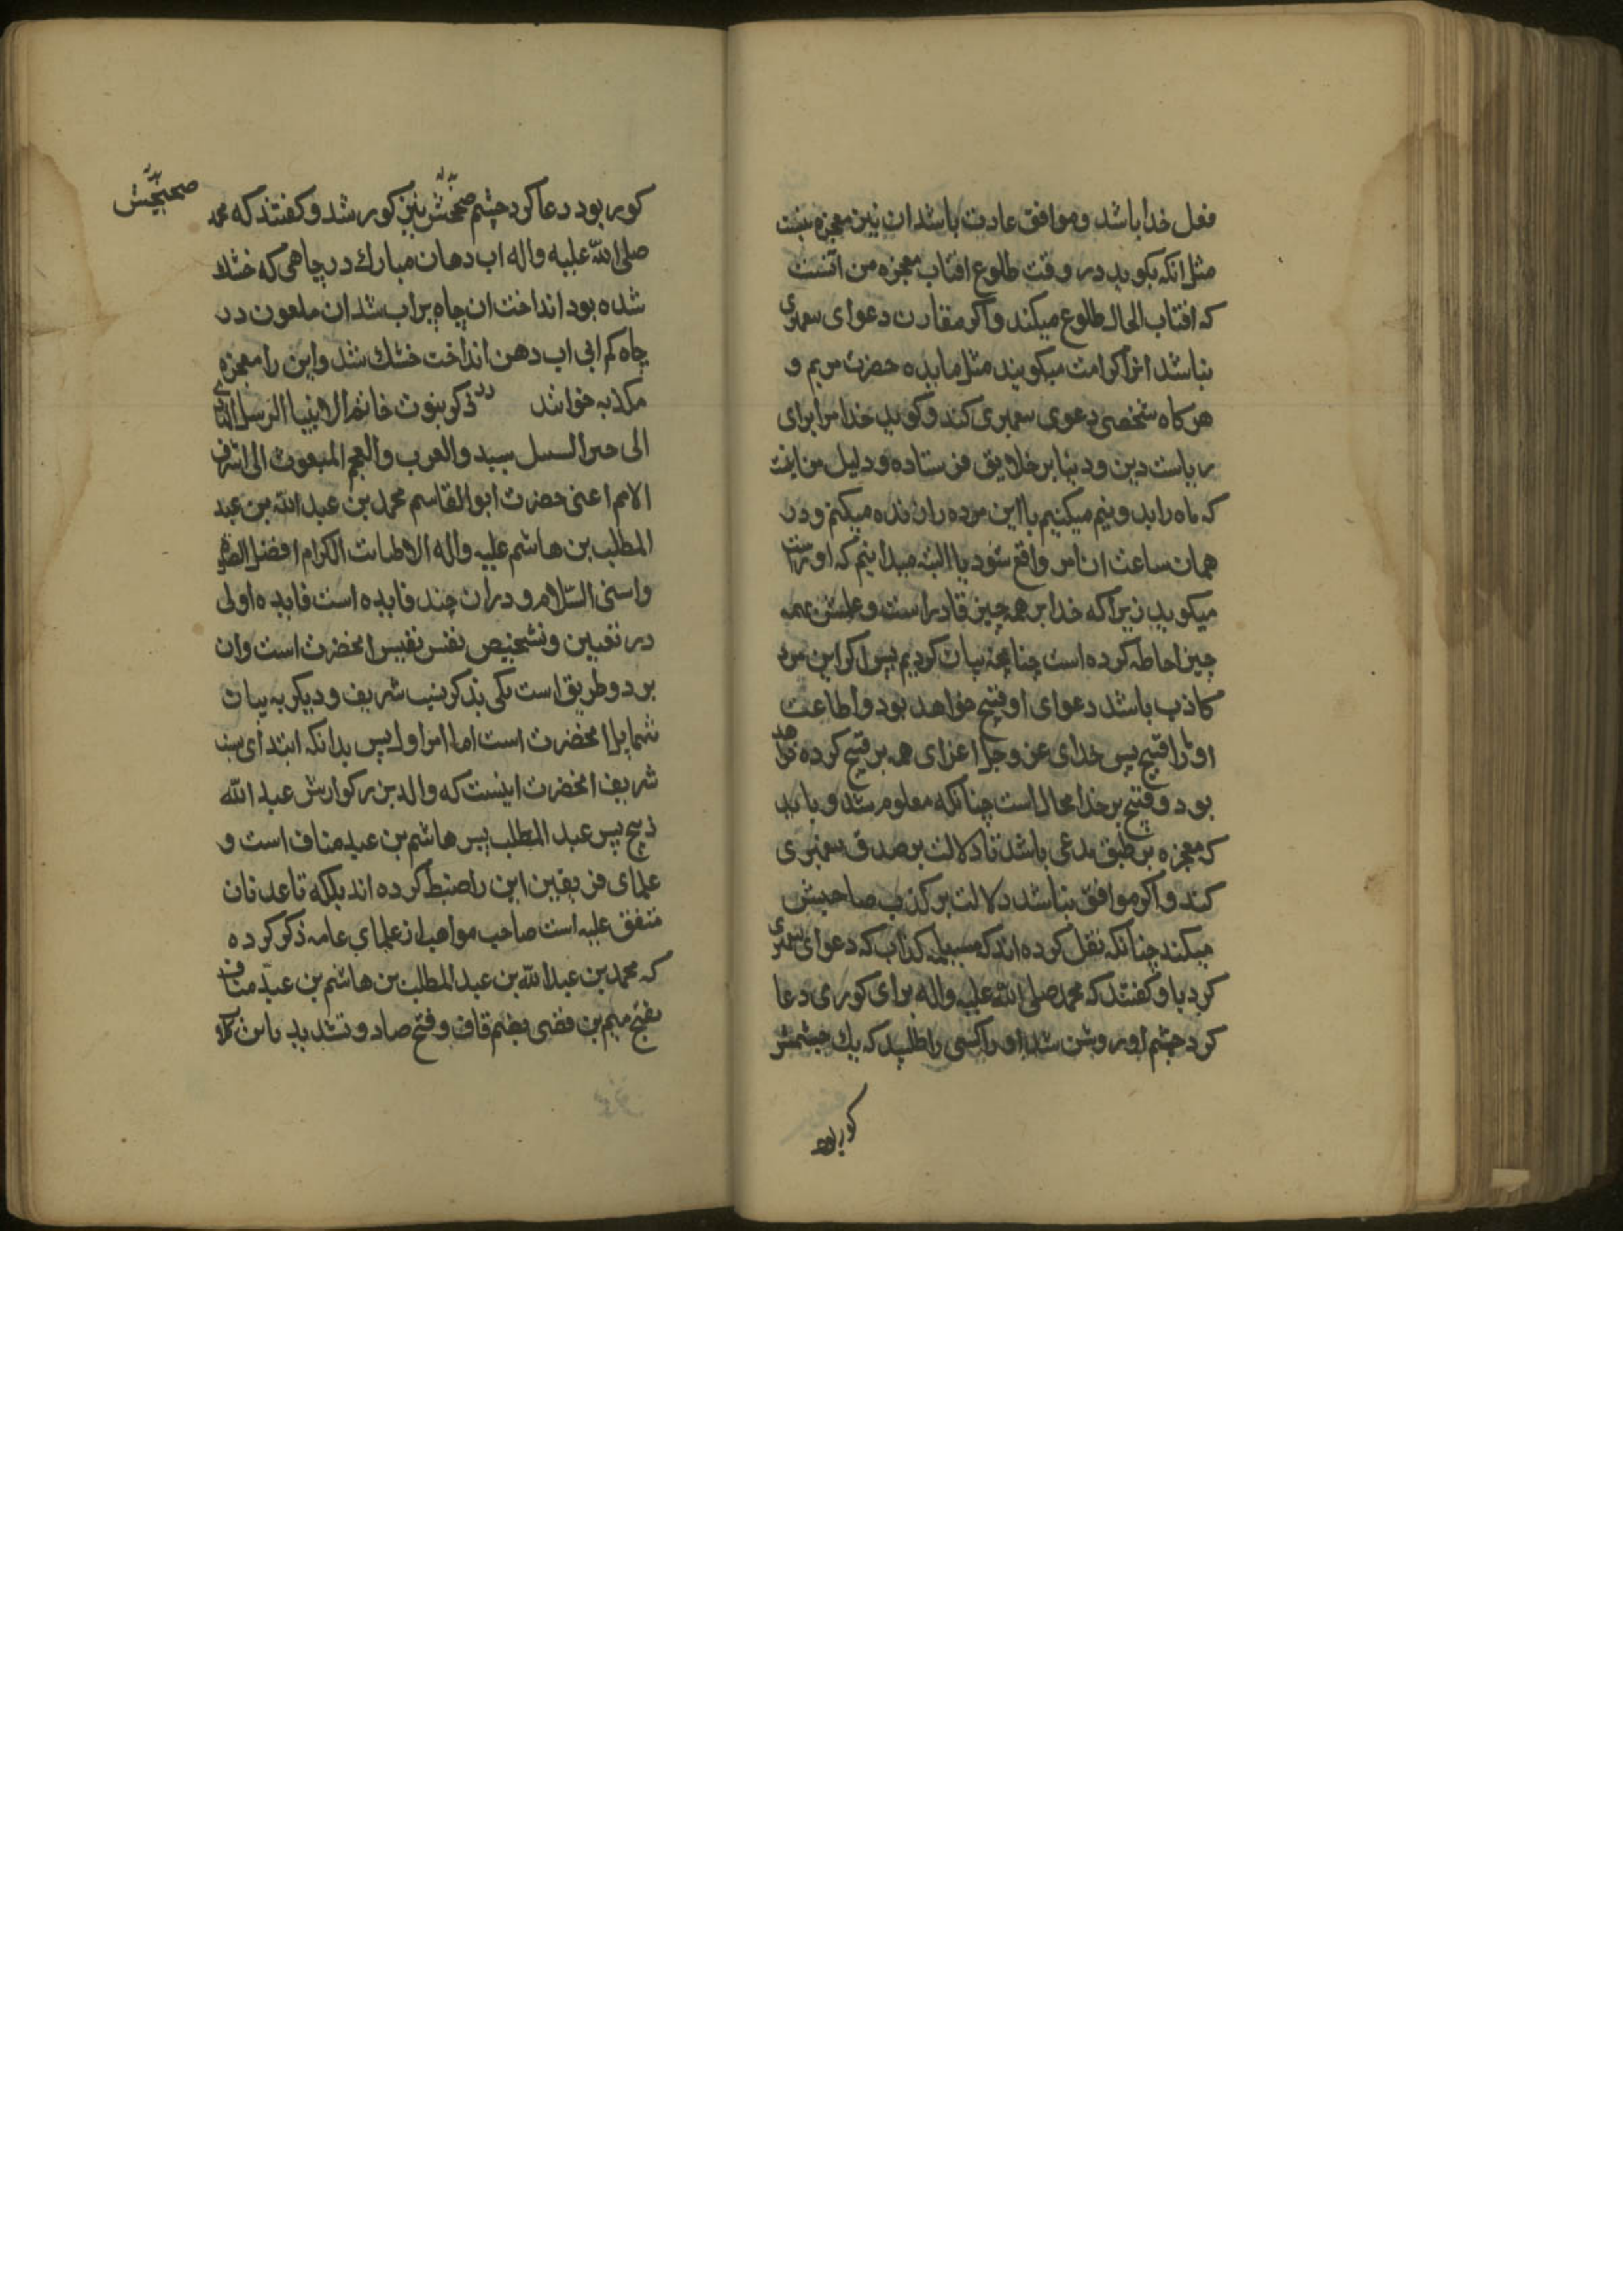 فعل خدا باشد و موافق عادت باشد ان نیز معجزه نیست
مثل انکه بکوید در وقت طلوع افتاب معجزه من آنست
که افتاب الحال طلوع میکند و اکر مقارن دعوای پیغمبری
نباشد انرا کرامت میکویند مثل مایده حضرت مریم و
هر کاه شخصی دعوی پیغمبری کند و کوید خدا مرا برای
ریاست دین و دنیا بر خلایق فرستاده و دلیل من اینست
که ماه را بدو نیم میکنیم یا این مرده را زنده میکنم و در
همان ساعت ان امر واقع شود یا البته میدانیم که او راست
میکوید زیرا که خدا بر همه چیز قادر است و علمش بهمه
چیز احاطه کرده است چنانچه بیان کردیم پس اکر این مرد
کاذب باشد دعوای او قبیح خواهد بود و اطاعت
او را قبیح پس خدای عز و جل اغرای همه بر قبیح کرده خواهد
بود و قبیح بر خدا محال است چنانکه معلوم شد و باید
که معجزه بر طبق مدعی باشد تا دلالت بر صدق پیغمبری
کند و اکر موافق نباشد دلالت بر کذب صاحبش
میکند چنانکه نقل کرده اند که مسیلمه کذاب که دعوای پیغمبری
کرد باو کفتند که محمد صلی الله علیه واله برای کوری دعا
کرد چشم او روشن شد او را کسی را طلبید که یك چشمش
کور بود
کور بود دعا کرد چشم صحیحش نیز کور شد و کفتند که محمد
صحیحش
صلی الله علیه واله اب دهان مبارك در چاهی که خشك
شده بود انداخت ان چاه پر اب شد ان ملعون در
چاه کم ابی اب دهن انداخت خشك شد و این را معجزه
مکذبه خوانند در ذکر نبوت خاتم الانبیا الرسل
الی السبل سید والعرب والعجم المبعوث الی اشرف
الامم اعنی حضرت ابو القاسم محمد بن عبد الله بن عبد
المطلب بن هاشم علیه واله الکرام افضل
واسنی السّلام و در ان چند فایده است فایده اولی
در تعیین و تشخیص نفس نفیس انحضرت است وان
بر دو طریق است یکی بذکر نسب شریف و دیکر به بیان
شمایل انحضرت است اما امر اول پس بدانکه ابتدای نسب
شریف انحضرت اینست که والد بزرکوارش عبد الله
ذبیح پسر عبد المطلب پسر هاشم بن عبد مناف است و
علمای فریقین این را ضبط کرده اند بلکه تا عدنان
متفق علیه است صاحب مواهب از علمای عامه ذکر کرده
که محمد بن عبد الله بن عبد المطلب بن هاشم بن عبد مناف
بفتح میم بن قصی بضم قاف و فتح صاد و تشدید یا بن کلاب